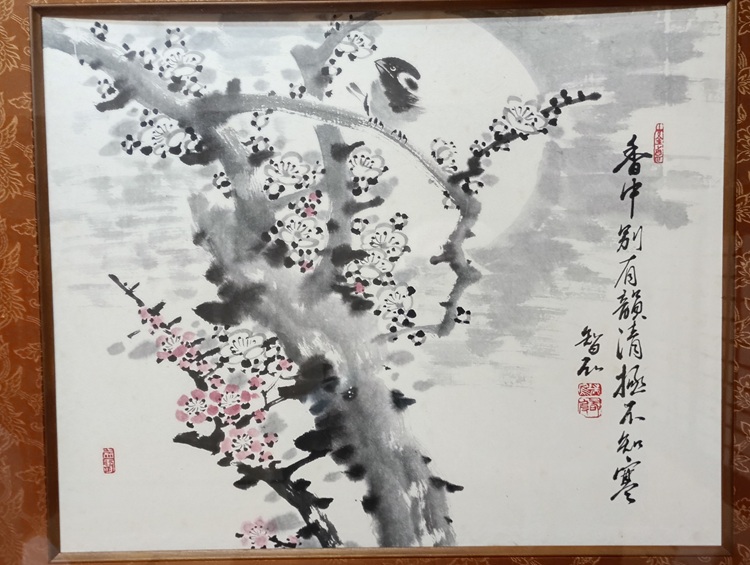 香中别有韻清極不知寒
智石